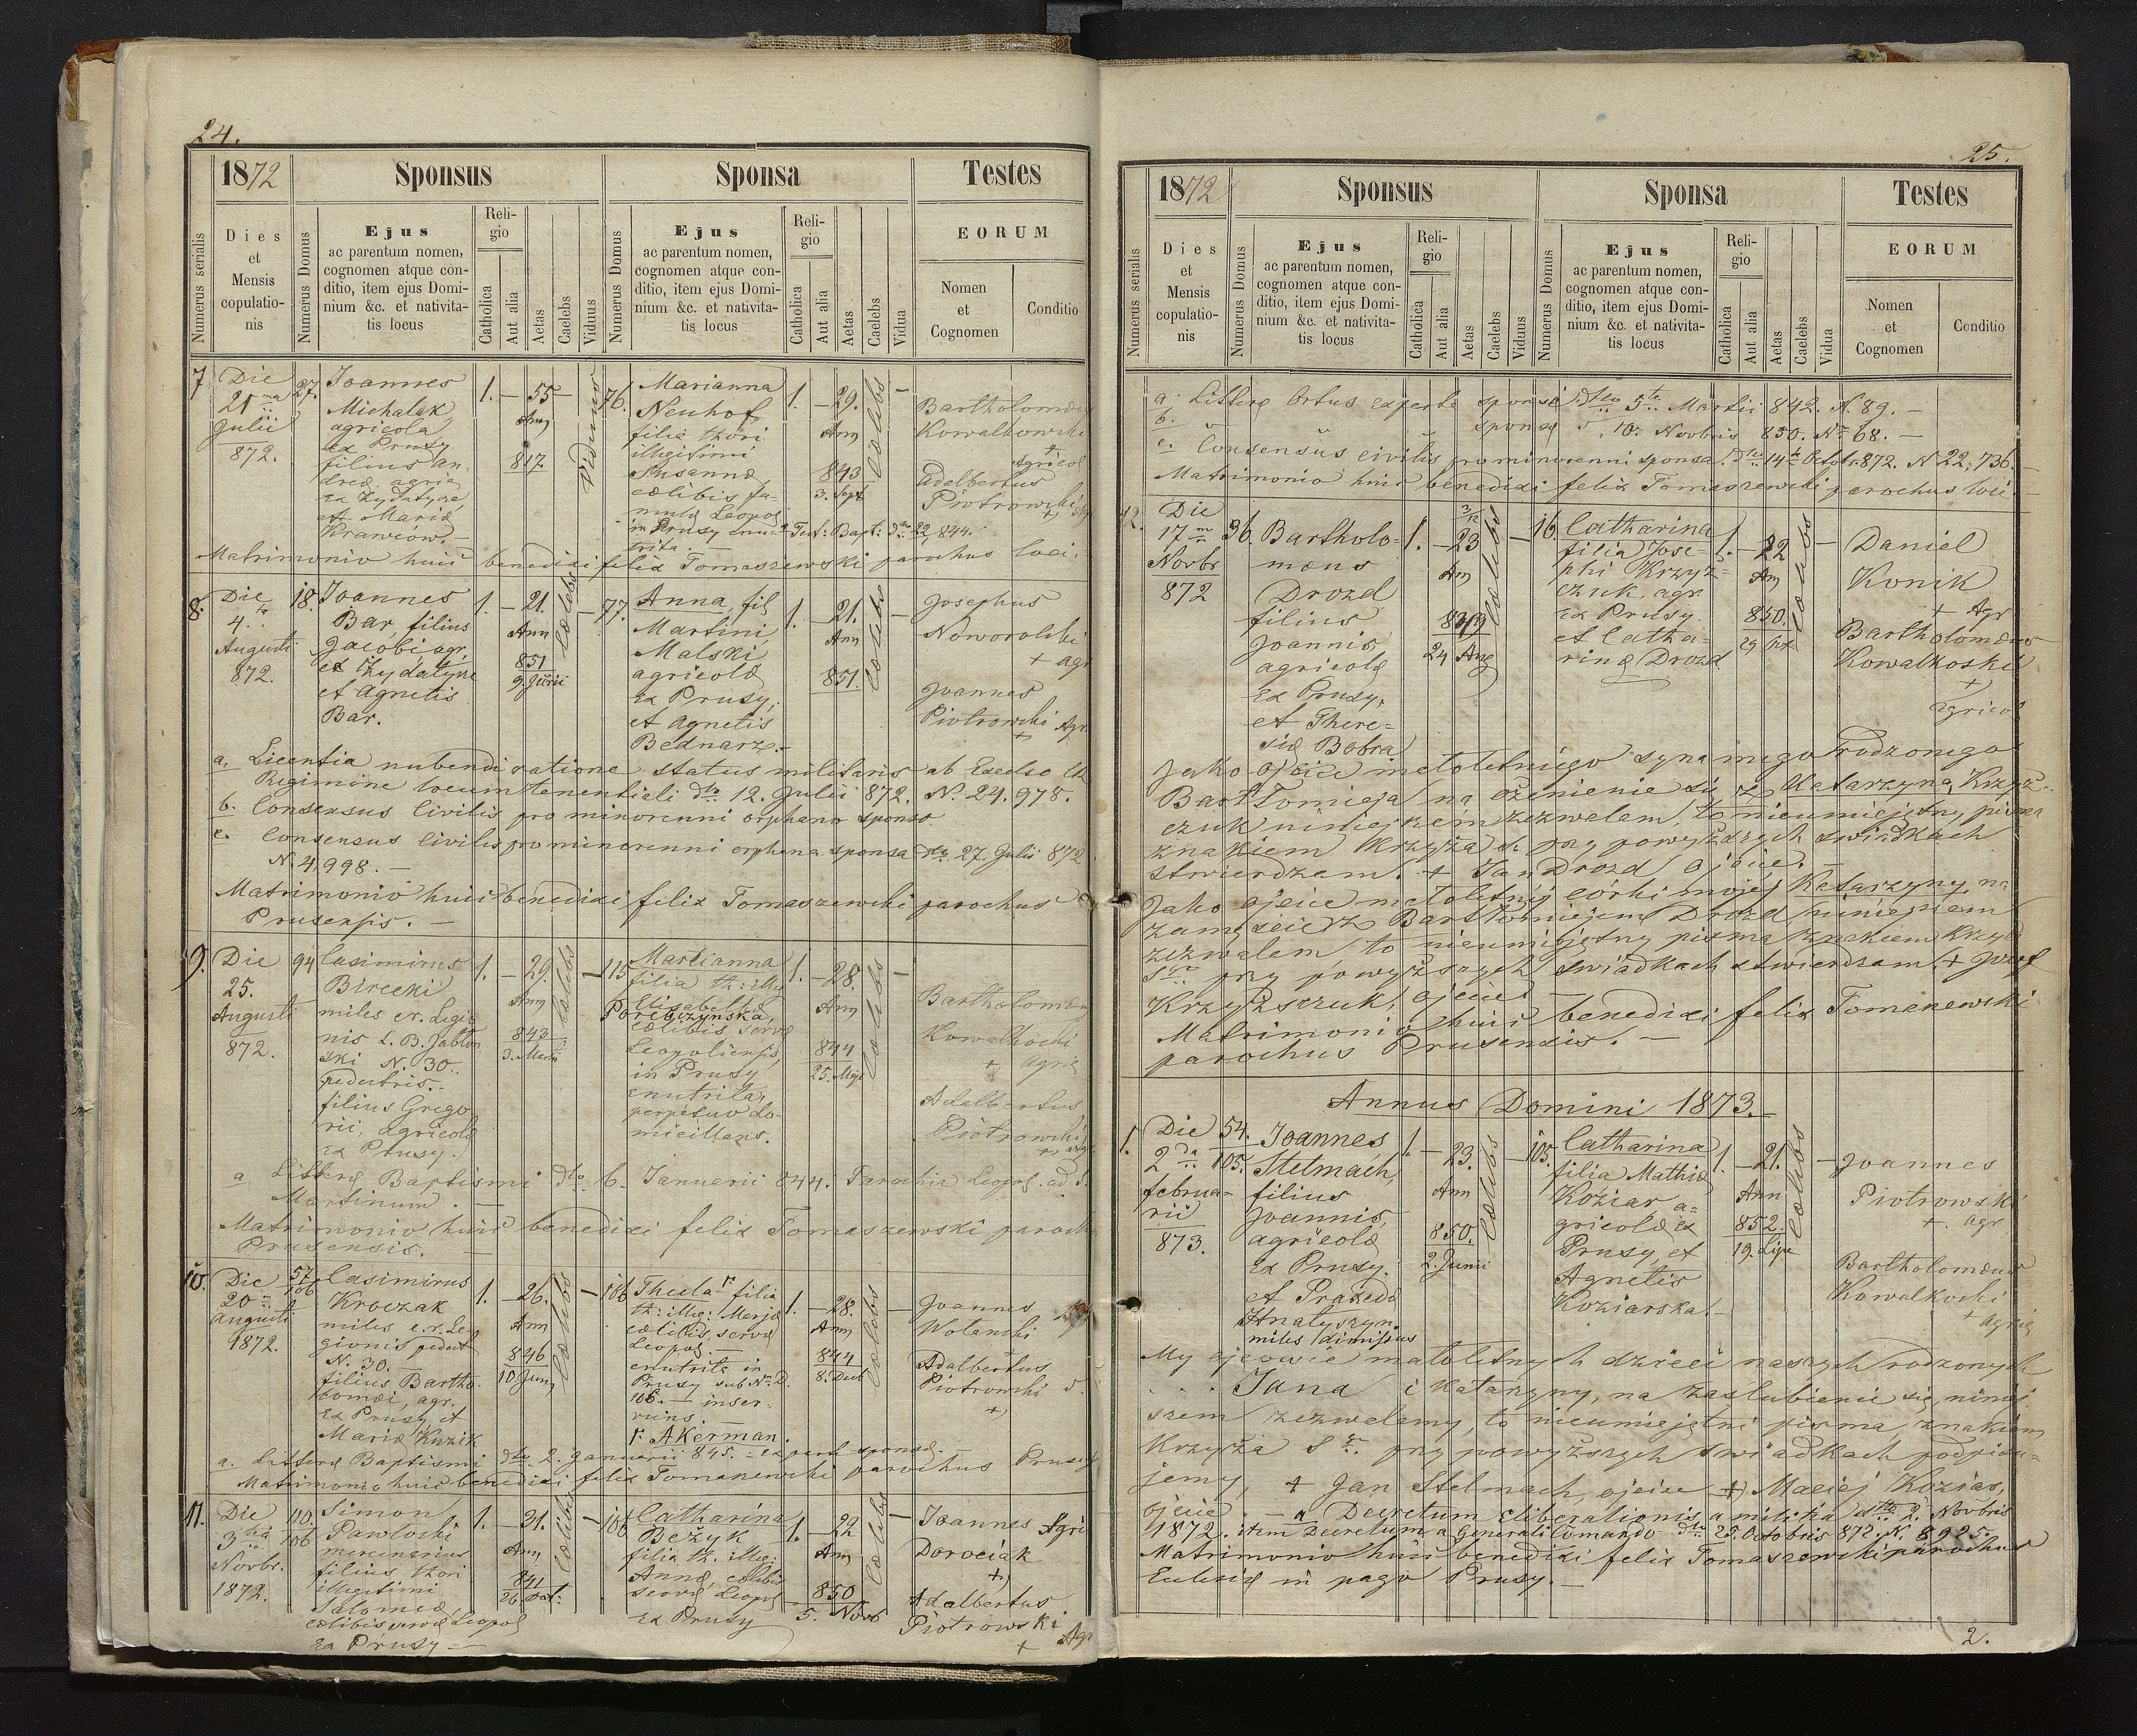 24.
1872
Sponsus
Sponsa
Testes
Numerus serialis
Dies
et
Mensis
copulatio-
nis
Numerus Domus
Ejus
ac parentum nomen,
cognomen atque con-
ditio, item ejus Domi-
nium &c. et nativita-
tis locus
Reli-
gio
Catholica
Aut alia
Aetas
Caelebs
Viduus
Numerus Domus
Ejus
ac parentum nomen,
cognomen atque con-
ditio, item ejus Domi-
nium &c. et nativita-
tis locus
Reli-
gio
Catholica
Aut alia
Aetas
Caelebs
Vidua
EORUM
Nomen
et
Cognomen
Conditio
7
Die
21
Julii
872.
27.
Joannes
Michalak
agricola
ex Prusy
filius An
dreæ, agric
ex Żydatycze
et Mariæ
Krawców.
1. – 55 –
Ann
817
Viduus
76.
Marianna
Neuhof,
filia thori
illegitimi
Susannæ
cœlibis fa-
mulæ Leopol
in Prusy enu-
trita. –
1. – 29. –
Ann
843
3. Sept
Cœlebs
Test: Bapt: 22, 844.
Bartholomæus
Kowalkowski
+
Agricol
Adalbertus
Piotrowski
+
Matrimonio huic benedixi felix Tomaszewski parochus loci.
8.
Die
4.
Augusti
872.
18.
Joannes
Bar, filius
Jacobi agr,
ex Żydatycze
et Agnetis
Bar.
1. – 21. –
Ann
851
9. Junii
Cœlebs
77.
Anna, fil
Martini
Malski
agricolæ
ex Prusy,
et Agnetis
Bednarz. –
1. – 21. –
Ann
851.
Cœlebs
Josephus
Noworolski
+ agr
Joannes
Piotrowski Agr.
+
a. Licentia nubendi ratione status militaris ab Excelso CR
Regimine locumtenentiali dto 12. Julii 872. N. 24.978.
b. Consensus Civilis pro minorenni orphano sponso.
c. Consensus Civilis pro minorenni orphana sponsa dto 27. Julii 872
N. 4,998. –
Matrimonio huic benedixi felix Tomaszewski parochus
Prusensis. –
9.
Die
25.
Augusti
872.
94
Casimirus
Birecki
miles c.r. Legio
nis L. B. Jablon
ski N. 30..
pedestris.
filius Grego
rii, agricolæ
ex Prusy.
1. – 29. –
Ann
843
3. Martii
Cœlebs
115
Marianna
filia th: illeg
Elisabethæ
Porębzynska,
cœlibis servæ
Leopoliensis,
in Prusy
enutrita,
perpetuo do-
micilians.
1. – 28. –
Ann
844
25. Maji
Cœlebs
Bartholomæus
Kowalkoski
+ agric
Adalbertus
Piotrowski
+ agr
a Litteræ Baptismi dto 6. Januarii 844. Parochiæ Leopol. ad S.
Martinum. –
Matrimonio huic benedixi felix Tomaszewski paroch
Prusensis. –
10.
Die
20
Augusti
1872.
57/106
Casimirus
Kroczak
miles c.r. Le
gionis pedest
N. 30. –
filius Bartho
lomæi, agr.
ex Prusy, et
Mariæ Kuzik
1. – 26. –
Ann
846
10. Junii
Cœlebs
106
Thecla r. filia
th: illeg: Mariæ
cœlibis, servæ
Leopol. –
enutrita in
Prusy sub No D.
106. – inser-
viens. –
r. Akerman.
1. – 28. –
Ann
844
8. Decb
Cœlebs
Joannes
Wolanski
+
Adalbertus
Piotrowski d.
+
a. Litteræ Baptismi dto 2. Januarii 845. – ex parte sponsæ. –
Matrimonio huic benedixi felix Tomaszewski parochus Prusy
11.
Die
3tia
Novbr.
1872.
110
106
Simon
Pawloski
mercenarius
filius thori
illegitimi
Salomeæ,
cœlibis servæ Leopol
ex Prusy –
1. – 31. –
Ann
841
26. Oct:
Cœlebs
106
Catharina
Beżyk
filia th. illeg:
Annæ, cœlibis
servæ Leopol
ex Prusy
1. – 22 –
Ann
850
5. Novb
Cœlebs
Joannes Agri
Dorociak
+
Adalbertus
Piotrowski
+ Agr
25.
1872
Sponsus
Sponsa
Testes
Numerus serialis
Dies
et
Mensis
copulatio-
nis
Numerus Domus
Ejus
ac parentum nomen,
cognomen atque con-
ditio, item ejus Domi-
nium &c. et nativita-
tis locus
Reli-
gio
Catholica
Aut alia
Aetas
Caelebs
Viduus
Numerus Domus
Ejus
ac parentum nomen,
cognomen atque con-
ditio, item ejus Domi-
nium &c. et nativita-
tis locus
Reli-
gio
Catholica
Aut alia
Aetas
Caelebs
Vidua
EORUM
Nomen
et
Cognomen
Conditio
a. Litteræ Ortus ex parte sponsi dto 5te Martii 842. N. 89. –
b. sponsæ 10. Novbris 850. No 68. –
c. Consensus civilis pro minorenni sponsa. dto 14 Octobr 872. N 22,736. –
Matrimonio huic benedixi felix Tomaszewski parochus loci. –
12.
Die
17
Novbr
872
36.
Bartholo-
mæus
Drozd
filius
Joannis,
agricolæ
ex Prusy,
et There-
siæ Bobra
1. – 23 –
Ann
849
24 Aug
Cœlebs
16.
Catharina
filia Jose-
phi Krzyż-
czuk, agr.
ex Prusy.
et Catha-
rinæ Drozd
1. – 22 –
Ann
850.
Cœlebs
Daniel
Konik
+ Agr
Bartholomæus
Kowalkoski
+
agricol
Jako ojciec małoletniego syna mego rodzonego
Bartłomieja na ożenienie się z Katarzyną Krzyż-
czuk niniejszem zezwalam, to nieumiejętny pisma
znakiem krzyża S. przy powyższych świadkach
stwierdzam. + Jan Drozd ojciec. –
Jako ojciec małoletnij córki mojej Katarzyny na
zamęście z Bartłomiejem Drozd niniejszem
zezwalam to nieumiejętny pisma znakiem krzyża
S. przy powyższych świadkach stwierdzam. + Jozef
Krzyżsczuk, ojciec –
Matrimonio huic benedixi felix Tomaszewski
parochus Prusensis. –
Annus Domini 1873.
1.
Die
2da
februa-
rii
873.
54.
105.
Joannes
Stelmach,
filius
Joannis,
agricolæ
ex Prusy.
et Praxedæ
Hnatyszyn.
miles dimissus
1. – 23. –
Ann
850.
2. Junii
Cœlebs
105.
Catharina
filia Mathiæ
Koziar a-
gricolæ ex
Prusy, et
Agnetis
Koziarska. –
1. – 21. –
Ann
852.
19. Lipc
Cœlebs
Joannes
Piotrowski
+ agr
Bartholomæus
Kowalkoski
+ agric
My ojcowie małoletnych dzieci naszych rodzonych
Jana i Katarzyny, na zaslubienie się niniej
szem zezwalamy, to nieumiejętni pisma, znakiem
Krzyża S przy powyższych świadkach podpisu-
jemy, + Jan Stelmach, ojciec + Maciej Koziar,
ojciec. – a Decretum eliberationis a militia dto 2. Novbris
1872. item Decretum a Generali Comando dto 25. Octobris 872. N. 8925.
Matrimonio huic benedixi felix Tomaszewski parochus
Eclesiæ in pago Prusy. –
2.